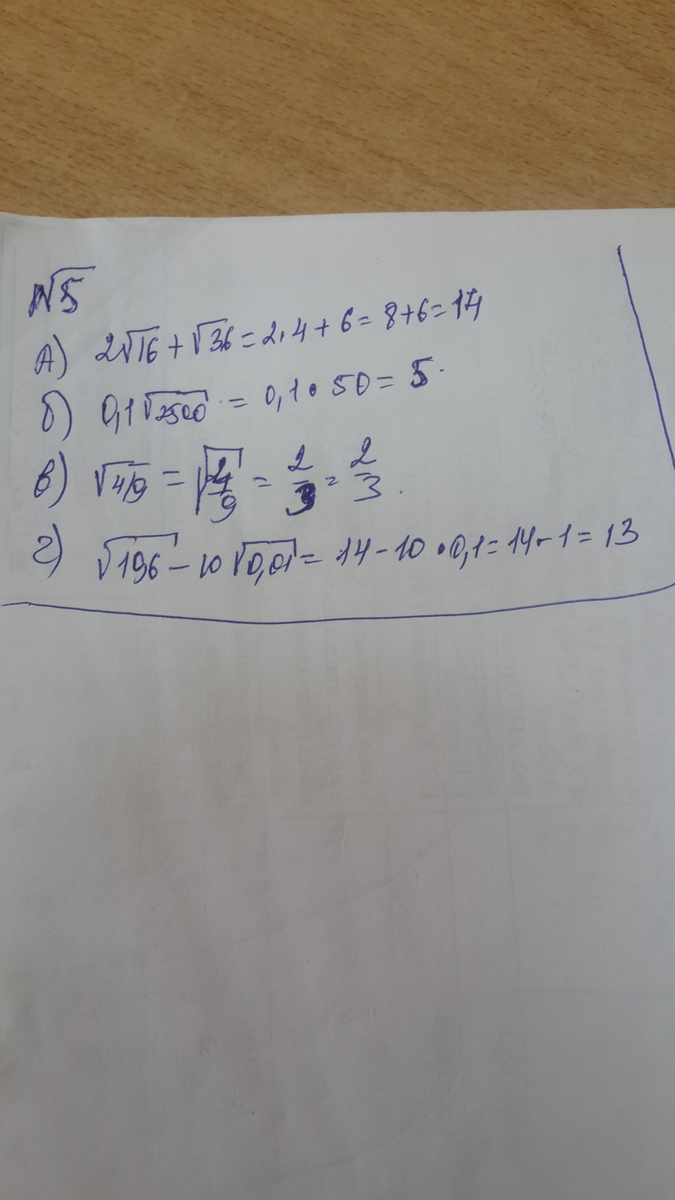 №5
А) 2√16 + √36 = 2·4 + 6 = 8+6 = 14
б) 0,1√2500 = 0,1 • 50 = 5.
в) √4/9 = √4/9 = 2/3 = 2/3.
г) √196 – 10√0,01 = 14 – 10 • 0,1 = 14 – 1 = 13